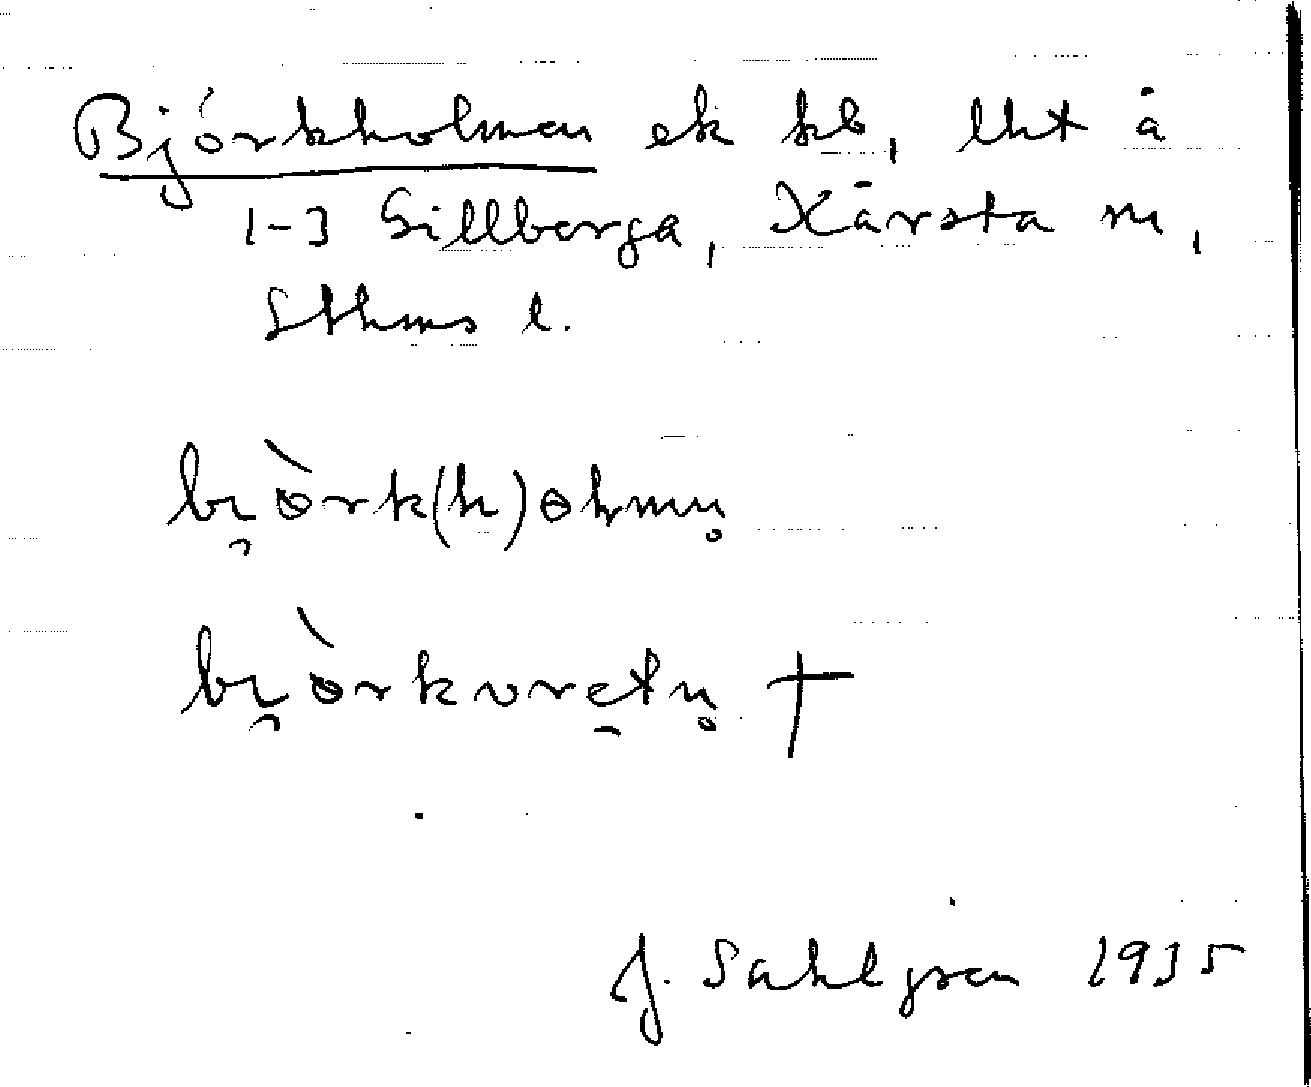 Björkholmen ek kb, lht å
1-3 Sillberga, Kårsta sn,
Sthms l.
bi̯òrk(h)olmn̥
bi̯òrkvretn̥ †
J. Sahlgren 1935